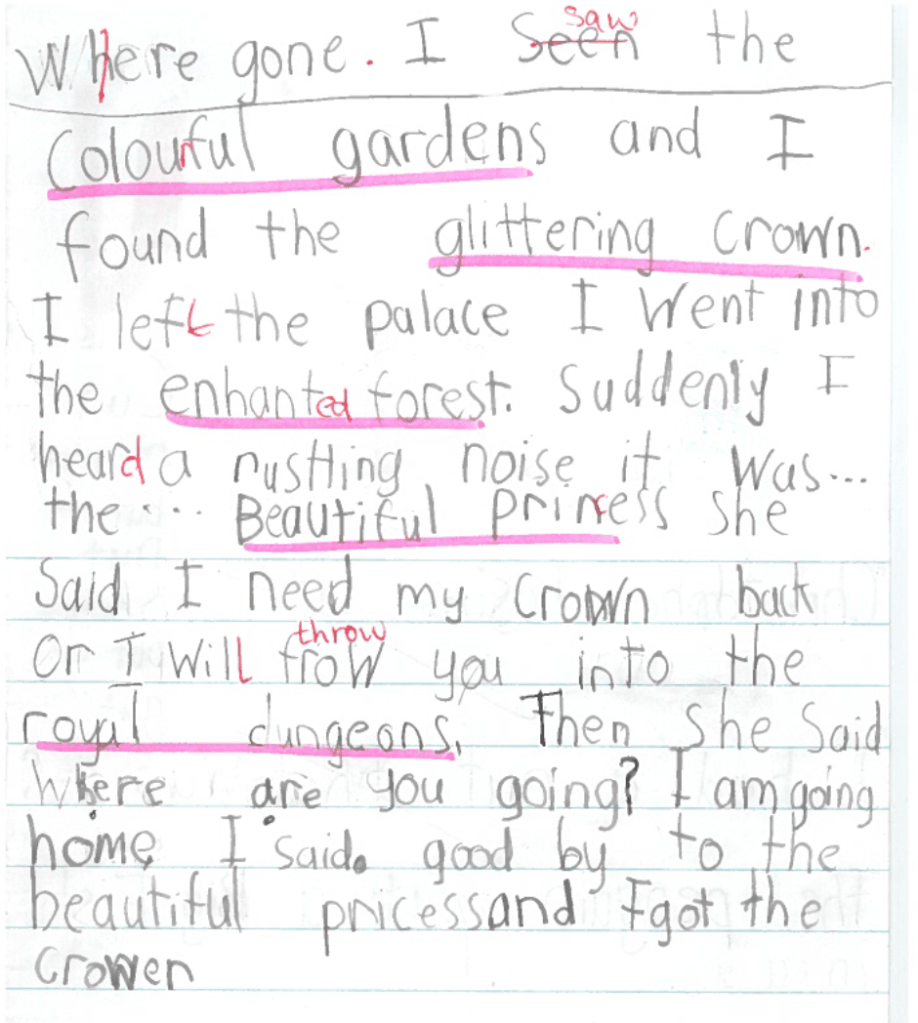 Where gone. I Seen saw the
Colourful gardens and I
found the glittering crown.
I left the palace I went into
the enhanted forest. Suddenly I
heard a rustling noise it was...
the... Beautiful princess she
Said I need my crown back
Or I will frow throw you into the
royal dungeons. Then she said
Where are you going? I am going
home I said. good by to the
beautiful pricess and I got the
crowen